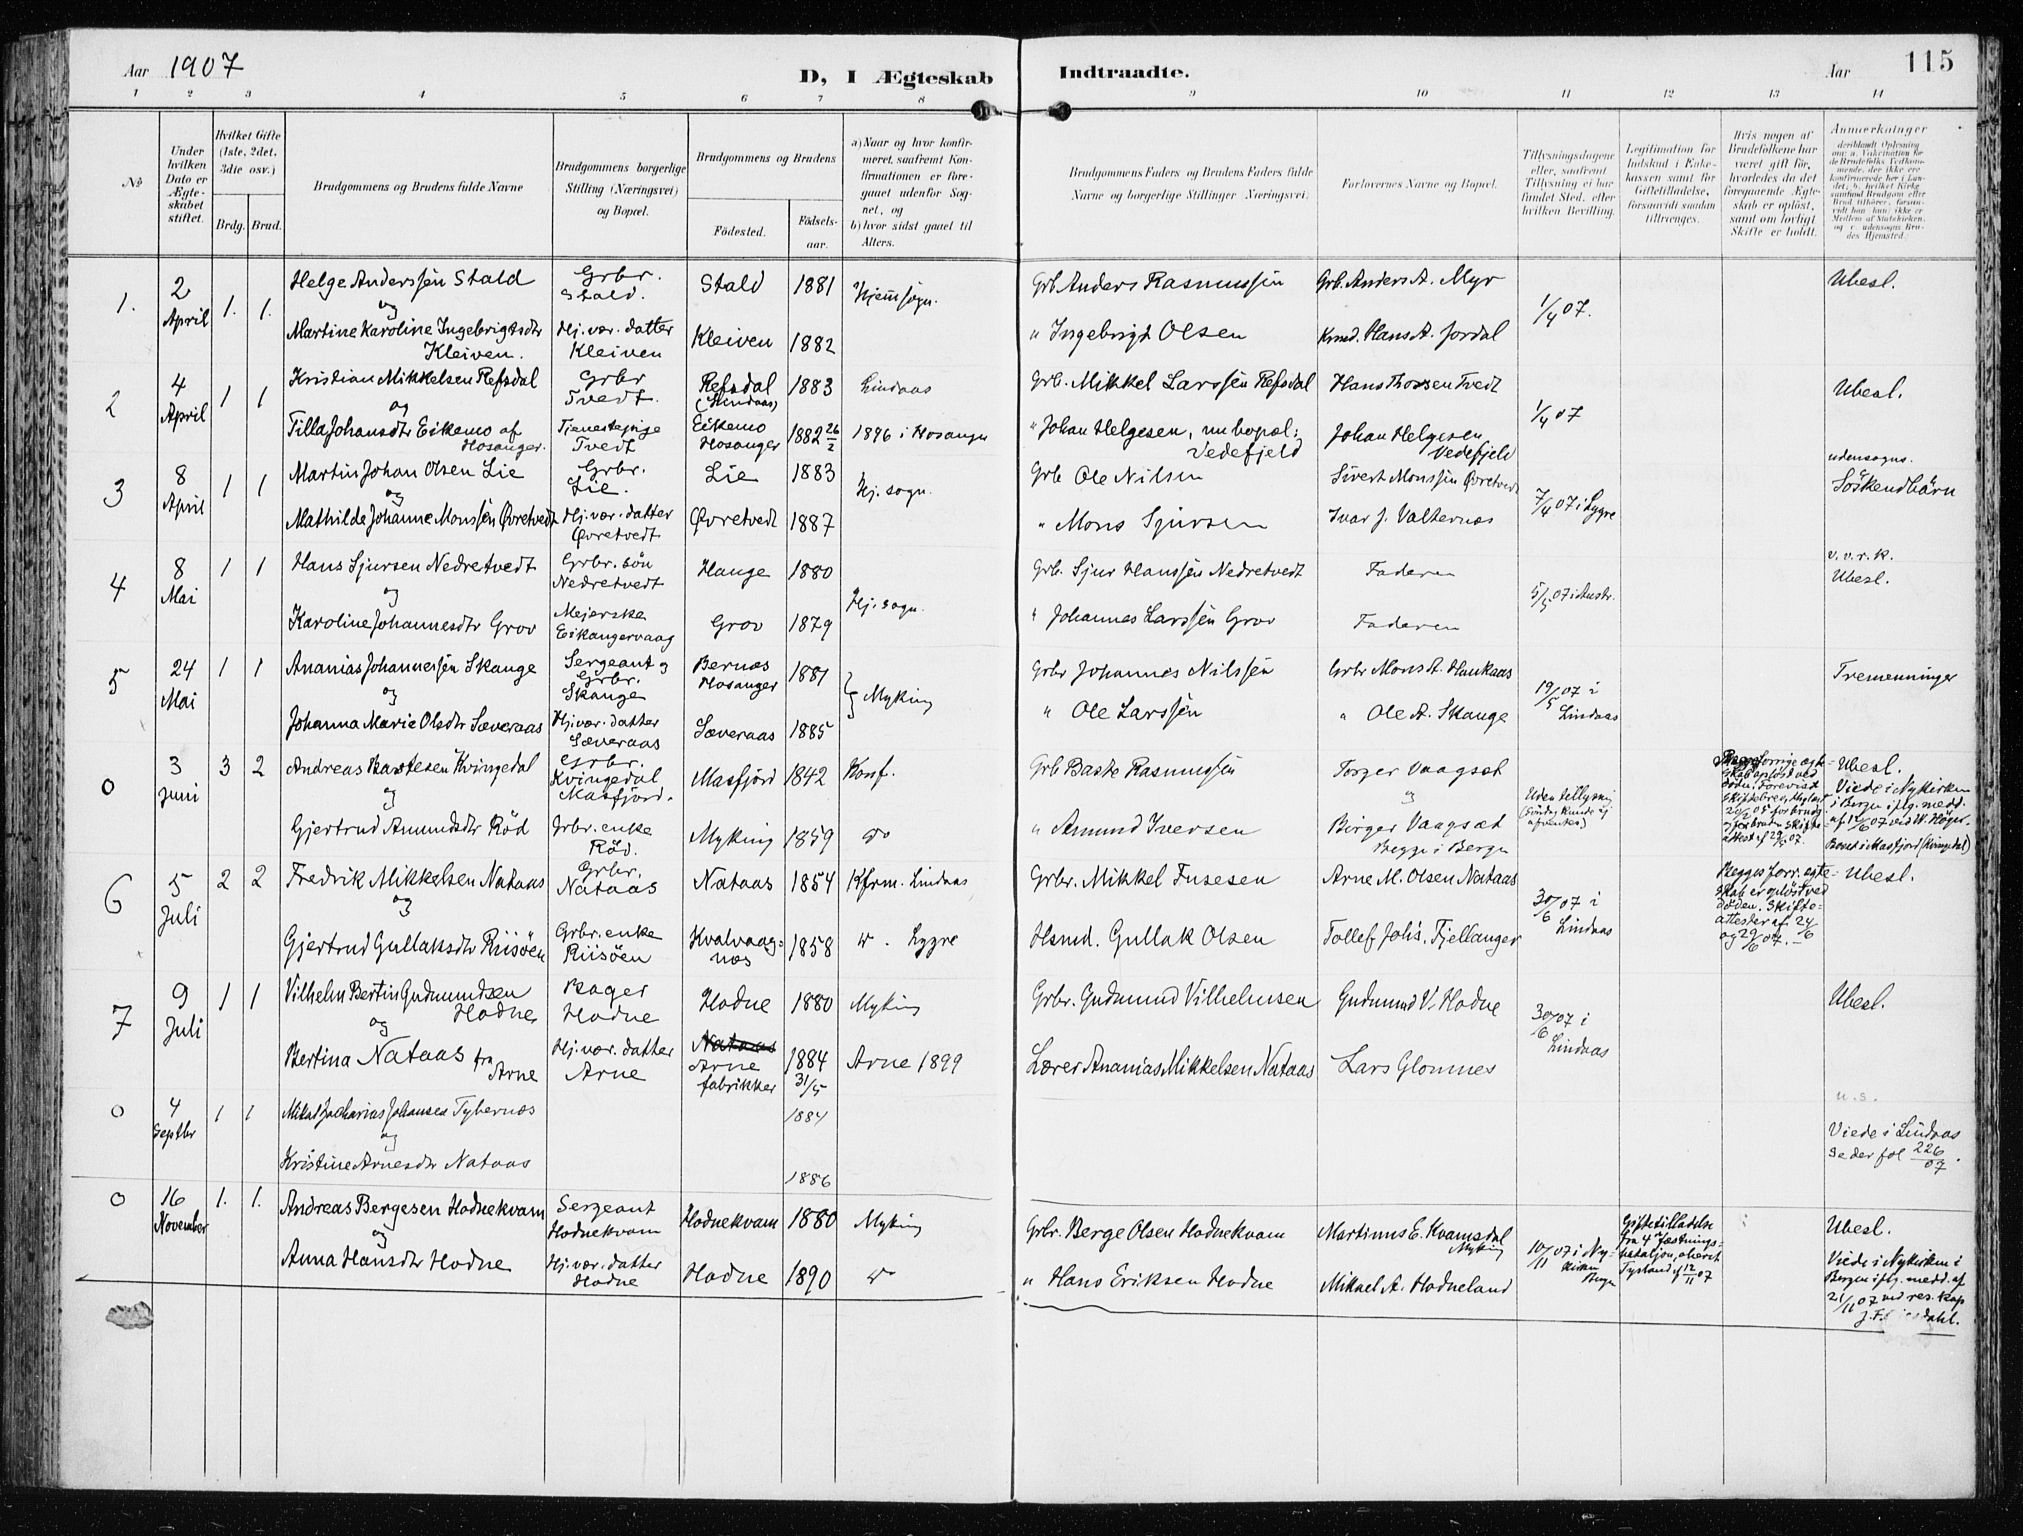 Aar 1907
D, I Ægteskab Indtraadte.
Aar 115
1 2 3 4 5 6 7 8 9 10 11 12 13 14
№
Under hvilken Dato er Ægteskabet stiftet.
Hvilket Gifte (1ste, 2det, 3die osv.)
Brdg. Brud.
Brudgommens og Brudens fulde Navne
Brudgommens borgerlige Stilling (Næringsvei) og Bopæl.
Brudgommens og Brudens
Fødested.
Fødselsaar.
a) Naar og hvor konfirmeret, saafremt Konfirmationen er foregaaet udenfor Sognet, og
b) hvor sidst gaaet til Alters.
Brudgommens Faders og Brudens Faders fulde Navne og borgerlige Stillinger (Næringsvei)
Forlovernes Navne og Bopæl.
Tillysningsdagene eller, saafremt Tillysning ei har fundet Sted, efter hvilken Bevilling.
Legitimation for Indskud i Enkekassen samt for Giftetilladelse, forsaavidt saadan tiltrænges.
Hvis nogen af Brudefolkene har været gift før, hvorledes da det foregaaende Ægteskab er opløst, samt om lovligt Skifte er holdt.
Anmærkninger
1. 2 April 1. 1.
Helge Anderssen Stald
og
Martine Karoline Ingebrigtsdtr Kleiven.
Grbr. Stald.
Hj. vær. datter Kleiven
Stald 1881
Kleiven 1882
Hjemsogn.
Grb Anders Rasmussen
" Ingebrigt Olsen
Grb. Anders A. Myr
Hans A. Jordal
1/4 07.
Ubesl.
2 4 April 1 1
Kristian Mikkelsen Refsdal
og
Tilla Johansdtr Eikemo af Hosanger.
Grbr Tvedt.
Tjenestepige Tvedt
Refsdal 1883
Eikemo Hosanger 1882 26/2
Lindaas
1896 i Hosanger
Grb. Mikkel Larssen Refsdal
" Johan Helgesen, nu bopæl: Vedefjeld
Hans Thorsen Tvedt
Johan Helgesen Vedefjeld
1/4 07
Ubesl.
udensogns.
3 8 April 1 1
Martin Johan Olsen Lie
og
Mathilde Johanne Monssen Øvretvedt
Grbr. Lie.
Hj. vær. datter Øvretvedt
Lie 1883
Øvretvedt 1887
Hj. sogn.
Grb Ole Nilsen
" Mons Sjursen
Sivert Monssen Øvretvedt
Ivar J. Valternæs
7/4 07 i Lygre
Söskendbärn
4 8 Mai 1 1
Hans Sjursen Nedretvedt
og
Karoline Johannesdtr Grov
Grbr. sön Nedretvedt
Mejerske Eikangervaag
Hauge 1880
Grov 1879
Hj. sogn.
Grb. Sjur Hanssen Nedretvedt
" Johannes Larssen Grov
Faderen
Faderen
5/5 07 i Austr.
v. v. r. k.
Ubesl.
5 24 Mai 1 1
Ananias Johannessen Skauge
og
Johanna Marie Olsdtr Sæveraas
Sergeant og Grbr. Skauge
Hj. vær. datter Sæveraas
Bernæs Hosanger 1881
Sæveraas 1885
Myking
Grbr Johannes Nilssen
" Ole Larssen
Grbr Mons A. Haukaas
" Ole A. Skauge
19/5 07 i Lindaas
Tremenninger
0 3 Juni 3 2
Andreas Bastesen Kvingedal
og
Gjertrud Amundsdtr Röd
Grbr. Kvingedal Masfjord.
Grbr. enke Röd.
Masfjord 1842
Myking 1859
Konf.
Grb Baste Rasmussen
" Amund Iversen
Torger Vaagsæt
og
Börger Vaagsæt
Begge i Bergen
Uden tillysning
Ubesl.
Viede i Nykirken i Bergen iflg. medd. af 12/6 07 ved W. Höyer.
Boset i Masfjord (Kvingedal)
6 5 Juli 2 2
Fredrik Mikkelsen Nataas
og
Gjertrud Gullaksdtr Riisöen
Grbr. Nataas
Grbr. enke Riisöen
Nataas 1854
Kvalvaagnes 1858
Kfrm. Lindaas
Lygre
Grbr. Mikkel Fusesen
Hsmd. Gullak Olsen
Arne M. Olsen Nataas
Tollef Johs. Fjellanger
30/6 07 i Lindaas
Begges forr. egteskab er oplöst ved döden. Skifteattester af 24/6 og 29/6 07.
Ubesl.
7 9 Juli 1 1
Vilhelm Bertin Gudmundsen Hodne
og
Bertina Nataas fra Arne
Bager Hodne
Hj. vær. datter Arne
Hodne 1880
Nataas Arne fabrikker 1884 31/5
Myking
Arne 1899
Grbr. Gudmund Vilhelmsen
Lærer Ananias Mikkelsen Nataas
Gudmund V. Hodne
Lars Glomnes
30/6 07 i Lindaas
Ubesl.
u.s.
0 4 Septbr 1 1
Mikal Zacharias Johansen Tybernæs
og
Kristine Arnesdtr Nataas
1884
1886
Viede i Lindaas
se der fol 226/07.
0 16 November 1. 1.
Andreas Bergesen Hodnekvam
og
Anna Hansdtr Hodne
Sergeant Hodnekvam
Hj. vær. datter Hodne
Hodnekvam 1880
Hodne 1890
Myking
Grbr. Berge Olsen Hodnekvam
" Hans Eriksen Hodne
Martinus E. Kvamsdal Myking
Mikael A. Hodneland
10/11 07 i Nykirken Bergen
Giftetilladelse fra 4de Fæstningsbataljon, oberst Tystand af 12/11 07
Ubesl.
Viede i Nykirken i Bergen iflg. medd. af 21/11 07 ved res. kap